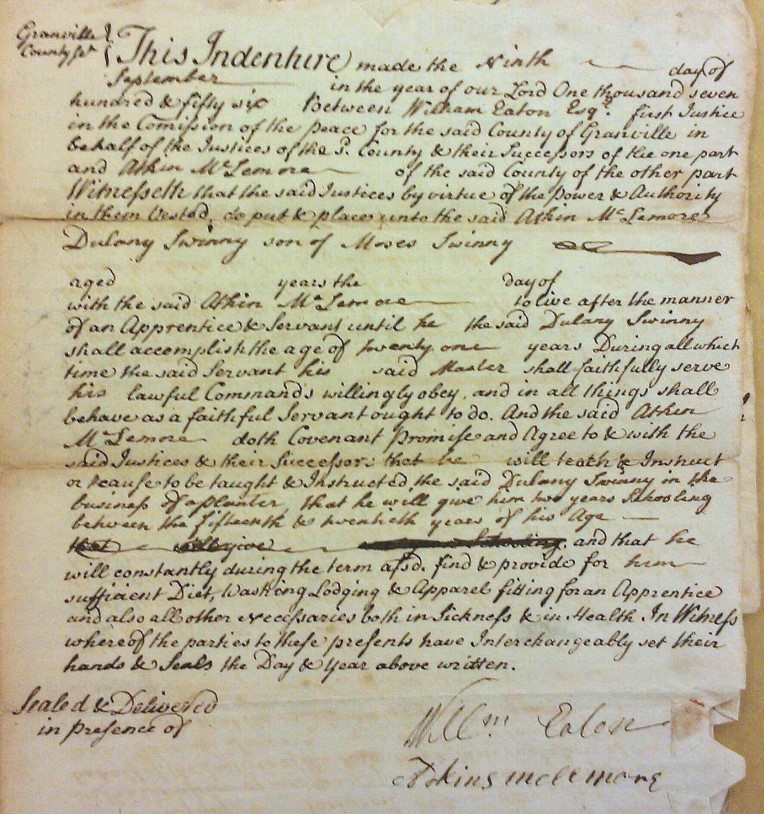 Granville
County Sct.
This Indenture made the Ninth day of
September in the year of our Lord One thousand seven
hundred & fifty six Between William Eaton Esqr. first Justice
in the Comission of the peace for the said County of Granville in
behalf of the Justices of the sd. County & their Successors of the one part
and Atkin McLemore of the said County of the other part
Witnesseth that the said Justices by virtue of the Power & Authority
in them Vested, do put & place unto the said Atkin McLemore
Dulany Swinny son of Moses Swinny
aged years the day of
with the said Atkin McLemore to live after the manner
of an Apprentice & Servant until he the said Dulany Swinny
shall accomplish the age of twenty one years During all which
time the said Servant his said Master shall faithfully serve
his lawful Commands willingly obey, and in all things shall
behave as a faithful Servant ought to do. And the said Atkin
McLemore doth Covenant Promise and Agree to & with the
said Justices & their Successors that he will teach & Instruct
or cause to be taught & Instructed the said Dulany Swinny in the
business of a planter, that he will give him two years Schooling
between the fifteenth & twentieth years of his Age
that will give Schooling, and that he
will constantly during the term afsd. find & provide for him
sufficient Diet, Washing Lodging & Apparel fitting for an Apprentice
and also all other necessaries both in Sickness & in Health In Witness
whereof the parties to these presents have Interchangeably set their
hands & Seals the Day & Year above written.
Sealed & Delivered
in presence of
Willm Eaton
Atkins mclemore